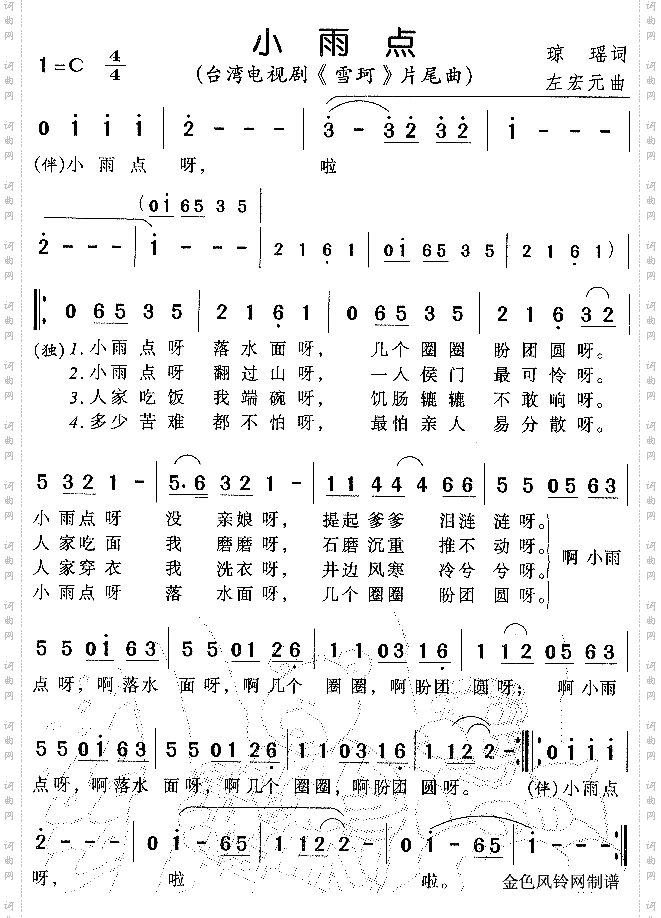 小雨点
1=C 4/4
(台湾电视剧《雪珂》片尾曲)
琼瑶词
左宏元曲
0 i i i | 2 - - - | 3 - 32 32 | i - - - |
(伴)小雨点 呀， 啦
(0i 65 3 5
2 - - - | i - - - | 2 1 6 1 | 0i 65 3 5 | 2 1 6 1) |
0 65 3 5 | 2 1 6 1 | 0 65 3 5 | 2 1 6 32 |
(独) 1.小雨点呀 落水面呀， 几个圈圈 盼团圆呀。
2.小雨点呀 翻过山呀， 一入侯门 最可怜呀。
3.人家吃饭 我端碗呀， 饥肠辘辘 不敢响呀。
4.多少苦难 都不怕呀， 最怕亲人 易分散呀。
5 32 1 - | 5.6 32 1 - | 11 44 4 66 | 5 5 05 63 |
小雨点呀 没亲娘呀， 提起爹爹 泪涟涟呀。
人家吃面 我磨磨呀， 石磨沉重 推不动呀。
人家穿衣 我洗衣呀， 井边风寒 冷兮兮呀。
小雨点呀 落水面呀， 几个圈圈 盼团圆呀。
啊小雨
5 5 0i 63 | 5 5 01 26 | 1 1 03 16 | 1 12 05 63 |
点呀，啊落水 面呀，啊几个 圈圈，啊盼团 圆呀； 啊小雨
5 5 0i 63 | 5 5 01 26 | 1 1 03 16 | 1 12 2 - :||: 0 i i i |
点呀，啊落水 面呀，啊几个 圈圈，啊盼团 圆呀。 (伴)小雨点
2 - - - | 0 i - 65 | 3 0 12 - | 0 i - 65 | i - - - :||
呀， 啦 啦。
金色风铃网制谱
词曲网